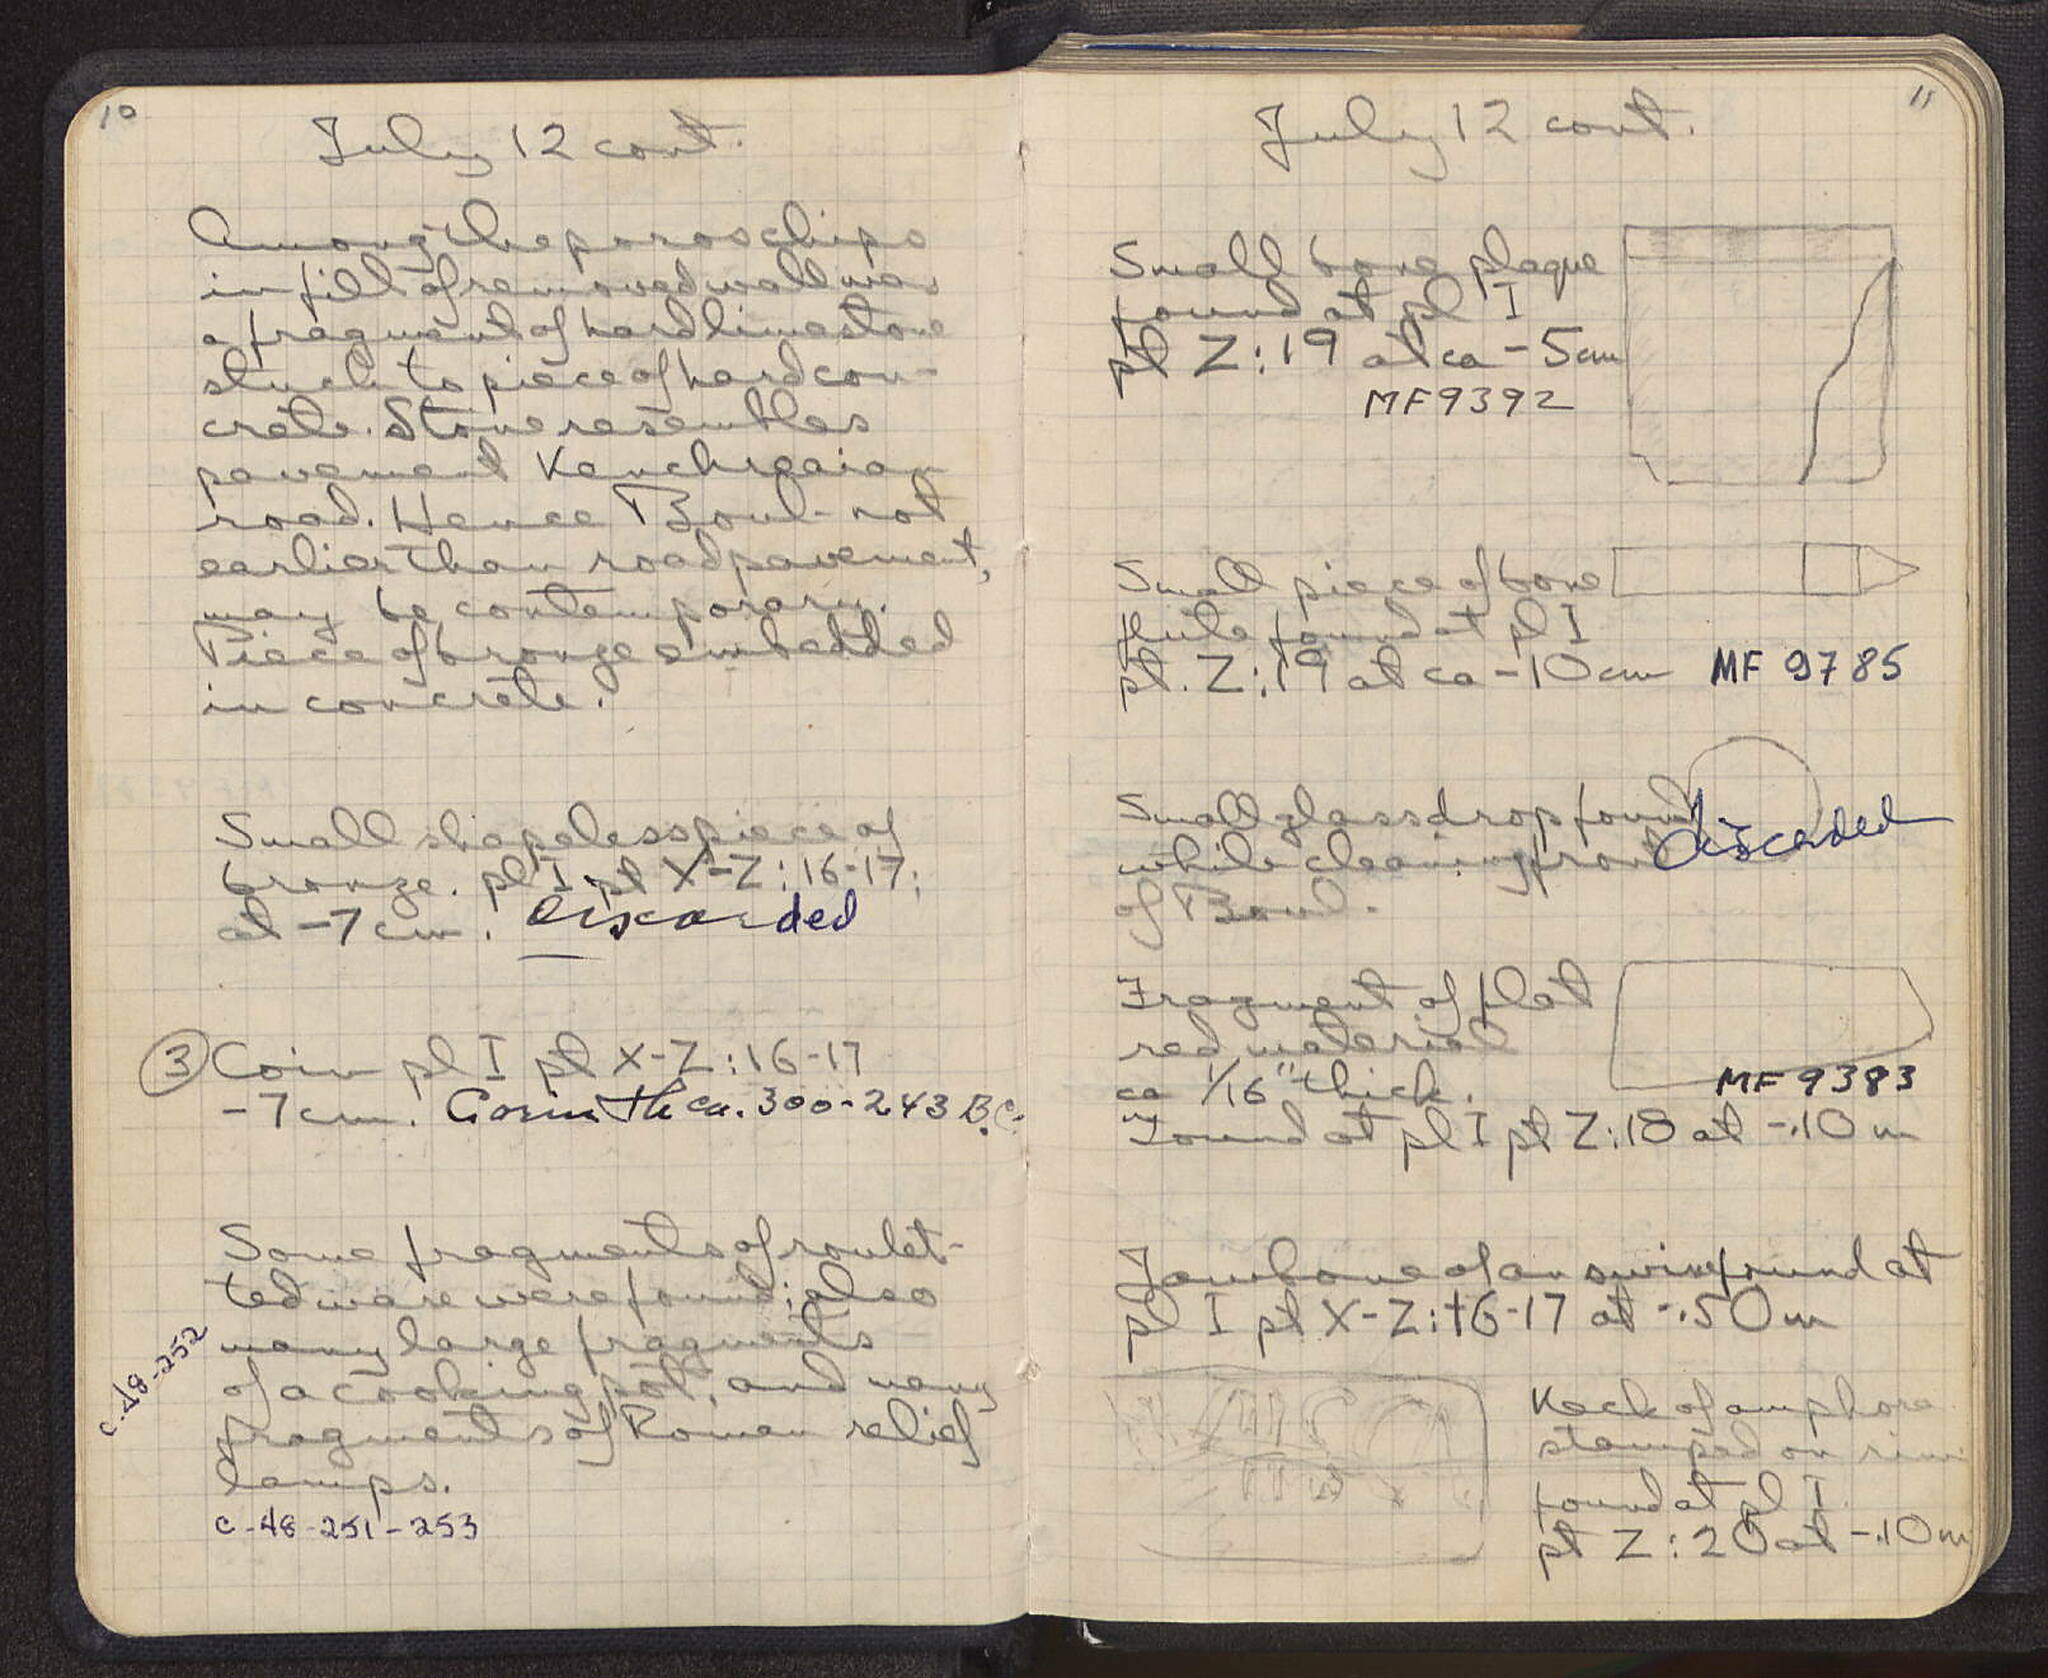 10
July 12 cont.
Among the poros chips
in fill of removed wall was
a fragment of hard limestone
stuck to piece of hard con-
crete. Stone resembles
pavement Kenchreaian
road. Hence Boul- not
earlier than road pavement,
may be contemporary.
Piece of bronze embedded
in concrete.
Small shapeless piece of
bronze. pl I pt X-Z:16-17;
at -7cm. Discarded
3 Coin pl I pt X-Z:16-17
-7cm. Corinth ca. 300-243 B.C.
Some fragments of roulet-
ted ware were found; also
many large fragments
of a cooking pot, and many
fragments of Roman relief
lamps.
C-48-252
C-48-251-253
11
July 12 cont.
Small bone plaque
found at pl I
pt Z:19 at ca -5cm
MF9392
Small piece of bone
flute found at pl I
pt. Z:19 at ca -10cm MF 9785
Small glass drop found
while cleaning front discarded
of Boul.
Fragment of flat
red material
ca 1/16" thick.
MF 9383
Found at pl I pt Z:18 at -.10m
Jawbone of an swine found at
pl I pt X-Z:16-17 at -.50m
Neck of amphora
stamped on rim
found at pl I
pt Z:20 at -.10m